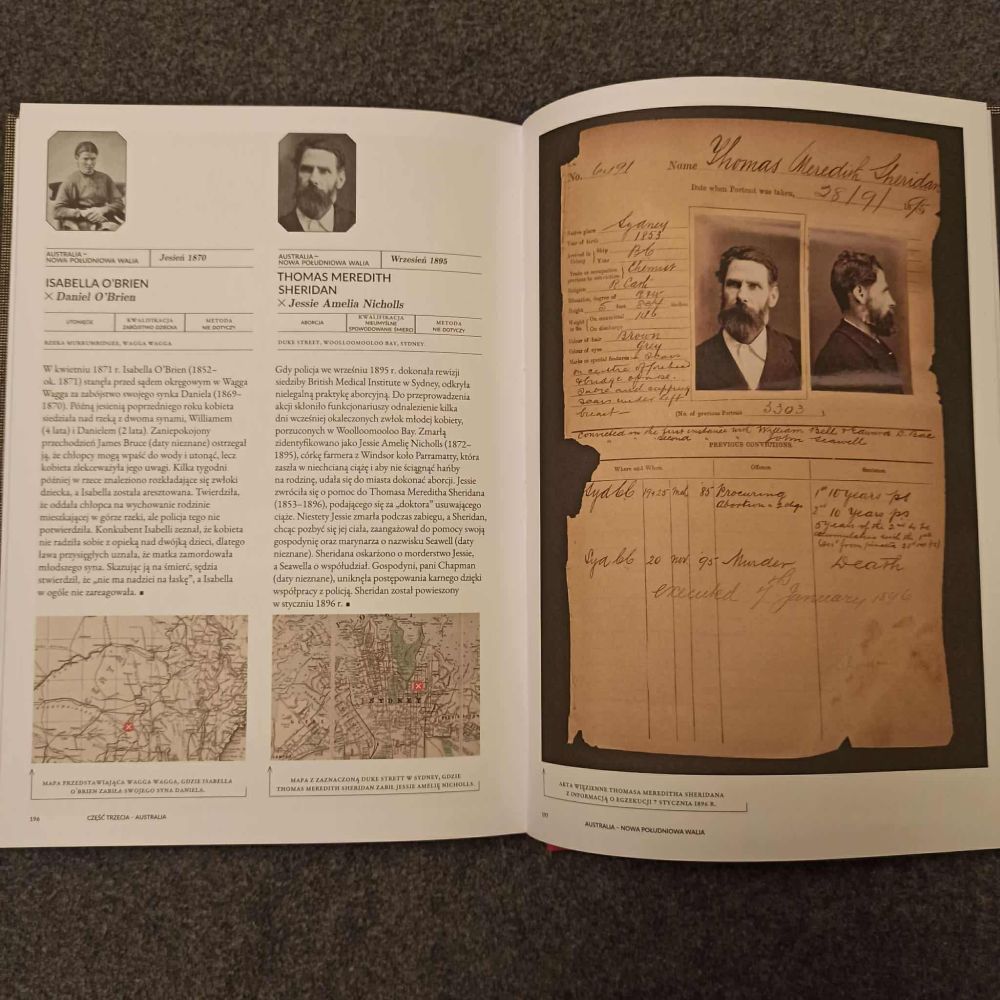 AUSTRALIA –
NOWA POŁUDNIOWA WALIA
Jesień 1870
ISABELLA O'BRIEN
× Daniel O'Brien
UTONIĘCIE
KWALIFIKACJA
ZABÓJSTWO DZIECKA
METODA
NIE DOTYCZY
RZEKA MURRUMBIDGEE, WAGGA WAGGA
W kwietniu 1871 r. Isabella O'Brien (1852–
ok. 1871) stanęła przed sądem okręgowym w Wagga
Wagga za zabójstwo swojego synka Daniela (1869–
1870). Późną jesienią poprzedniego roku kobieta
siedziała nad rzeką z dwoma synami, Williamem
(4 lata) i Danielem (2 lata). Zaniepokojony
przechodzień James Bruce (daty nieznane) ostrzegał
ją, że chłopcy mogą wpaść do wody i utonąć, lecz
kobieta zlekceważyła jego uwagi. Kilka tygodni
później w rzece znaleziono rozkładające się zwłoki
dziecka, a Isabella została aresztowana. Twierdziła,
że oddała chłopca na wychowanie rodzinie
mieszkającej w górze rzeki, ale policja tego nie
potwierdziła. Konkubent Isabelli zeznał, że kobieta
nie radziła sobie z opieką nad dwójką dzieci, dlatego
ława przysięgłych uznała, że matka zamordowała
młodszego syna. Skazując ją na śmierć, sędzia
stwierdził, że „nie ma nadziei na łaskę”, a Isabella
w ogóle nie zareagowała. ■
MAPA PRZEDSTAWIAJĄCA WAGGA WAGGA, GDZIE ISABELLA
O'BRIEN ZABIŁA SWOJEGO SYNA DANIELA.
196
CZĘŚĆ TRZECIA – AUSTRALIA
AUSTRALIA –
NOWA POŁUDNIOWA WALIA
Wrzesień 1895
THOMAS MEREDITH
SHERIDAN
× Jessie Amelia Nicholls
ABORCJA
KWALIFIKACJA
NIEUMYŚLNE
SPOWODOWANIE ŚMIERCI
METODA
NIE DOTYCZY
DUKE STREET, WOOLLOOMOOLOO BAY, SYDNEY
Gdy policja we wrześniu 1895 r. dokonała rewizji
siedziby British Medical Institute w Sydney, odkryła
nielegalną praktykę aborcyjną. Do przeprowadzenia
akcji skłoniło funkcjonariuszy odnalezienie kilka
dni wcześniej okaleczonych zwłok młodej kobiety,
porzuconych w Woolloomooloo Bay. Zmarłą
zidentyfikowano jako Jessie Amelię Nicholls (1872–
1895), córkę farmera z Windsor koło Parramatty, która
zaszła w niechcianą ciążę i aby nie ściągnąć hańby
na rodzinę, udała się do miasta dokonać aborcji. Jessie
zwróciła się o pomoc do Thomasa Mereditha Sheridana
(1853–1896), podającego się za „doktora” usuwającego
ciąże. Niestety Jessie zmarła podczas zabiegu, a Sheridan,
chcąc pozbyć się jej ciała, zaangażował do pomocy swoją
gospodynię oraz marynarza o nazwisku Seawell (daty
nieznane). Sheridana oskarżono o morderstwo Jessie,
a Seawella o współudział. Gospodyni, pani Chapman
(daty nieznane), uniknęła postępowania karnego dzięki
współpracy z policją. Sheridan został powieszony
w styczniu 1896 r. ■
SYDNEY
MAPA Z ZAZNACZONĄ DUKE STRETT W SYDNEY, GDZIE
THOMAS MEREDITH SHERIDAN ZABIŁ JESSIE AMELIĘ NICHOLLS.
No. 6191 Name Thomas Meredith Sheridan
Date when Portrait was taken, 28/9/
Native place Sydney
Year of birth 1853
Arrived in Colony
Ship
Year
BC
Trade or occupation previous to conviction
Chemist
Religion R. Cath
Education, degree of R & W
Height 5 feet inches
Weight
On committal 186
On discharge
Colour of hair Brown
Colour of eyes Grey
Marks or special features:– Scars
on centre of forehead
& bridge of nose.
scars under left
breast –
(No. of previous Portrait 3303)
Convicted in the first instance with William Bell &
second John Seawell
PREVIOUS CONVICTIONS.
Where and When.
Offence.
Sentence.
85 Procuring
Abortion
1st 10 years ps
2nd 10 Years ps
5 years of the 2nd to be
accumulative with the 1st
20 Nov '95 Murder
Death
executed 7th January 1896
AKTA WIĘZIENNE THOMASA MEREDITHA SHERIDANA
Z INFORMACJĄ O EGZEKUCJI 7 STYCZNIA 1896 R.
AUSTRALIA – NOWA POŁUDNIOWA WALIA